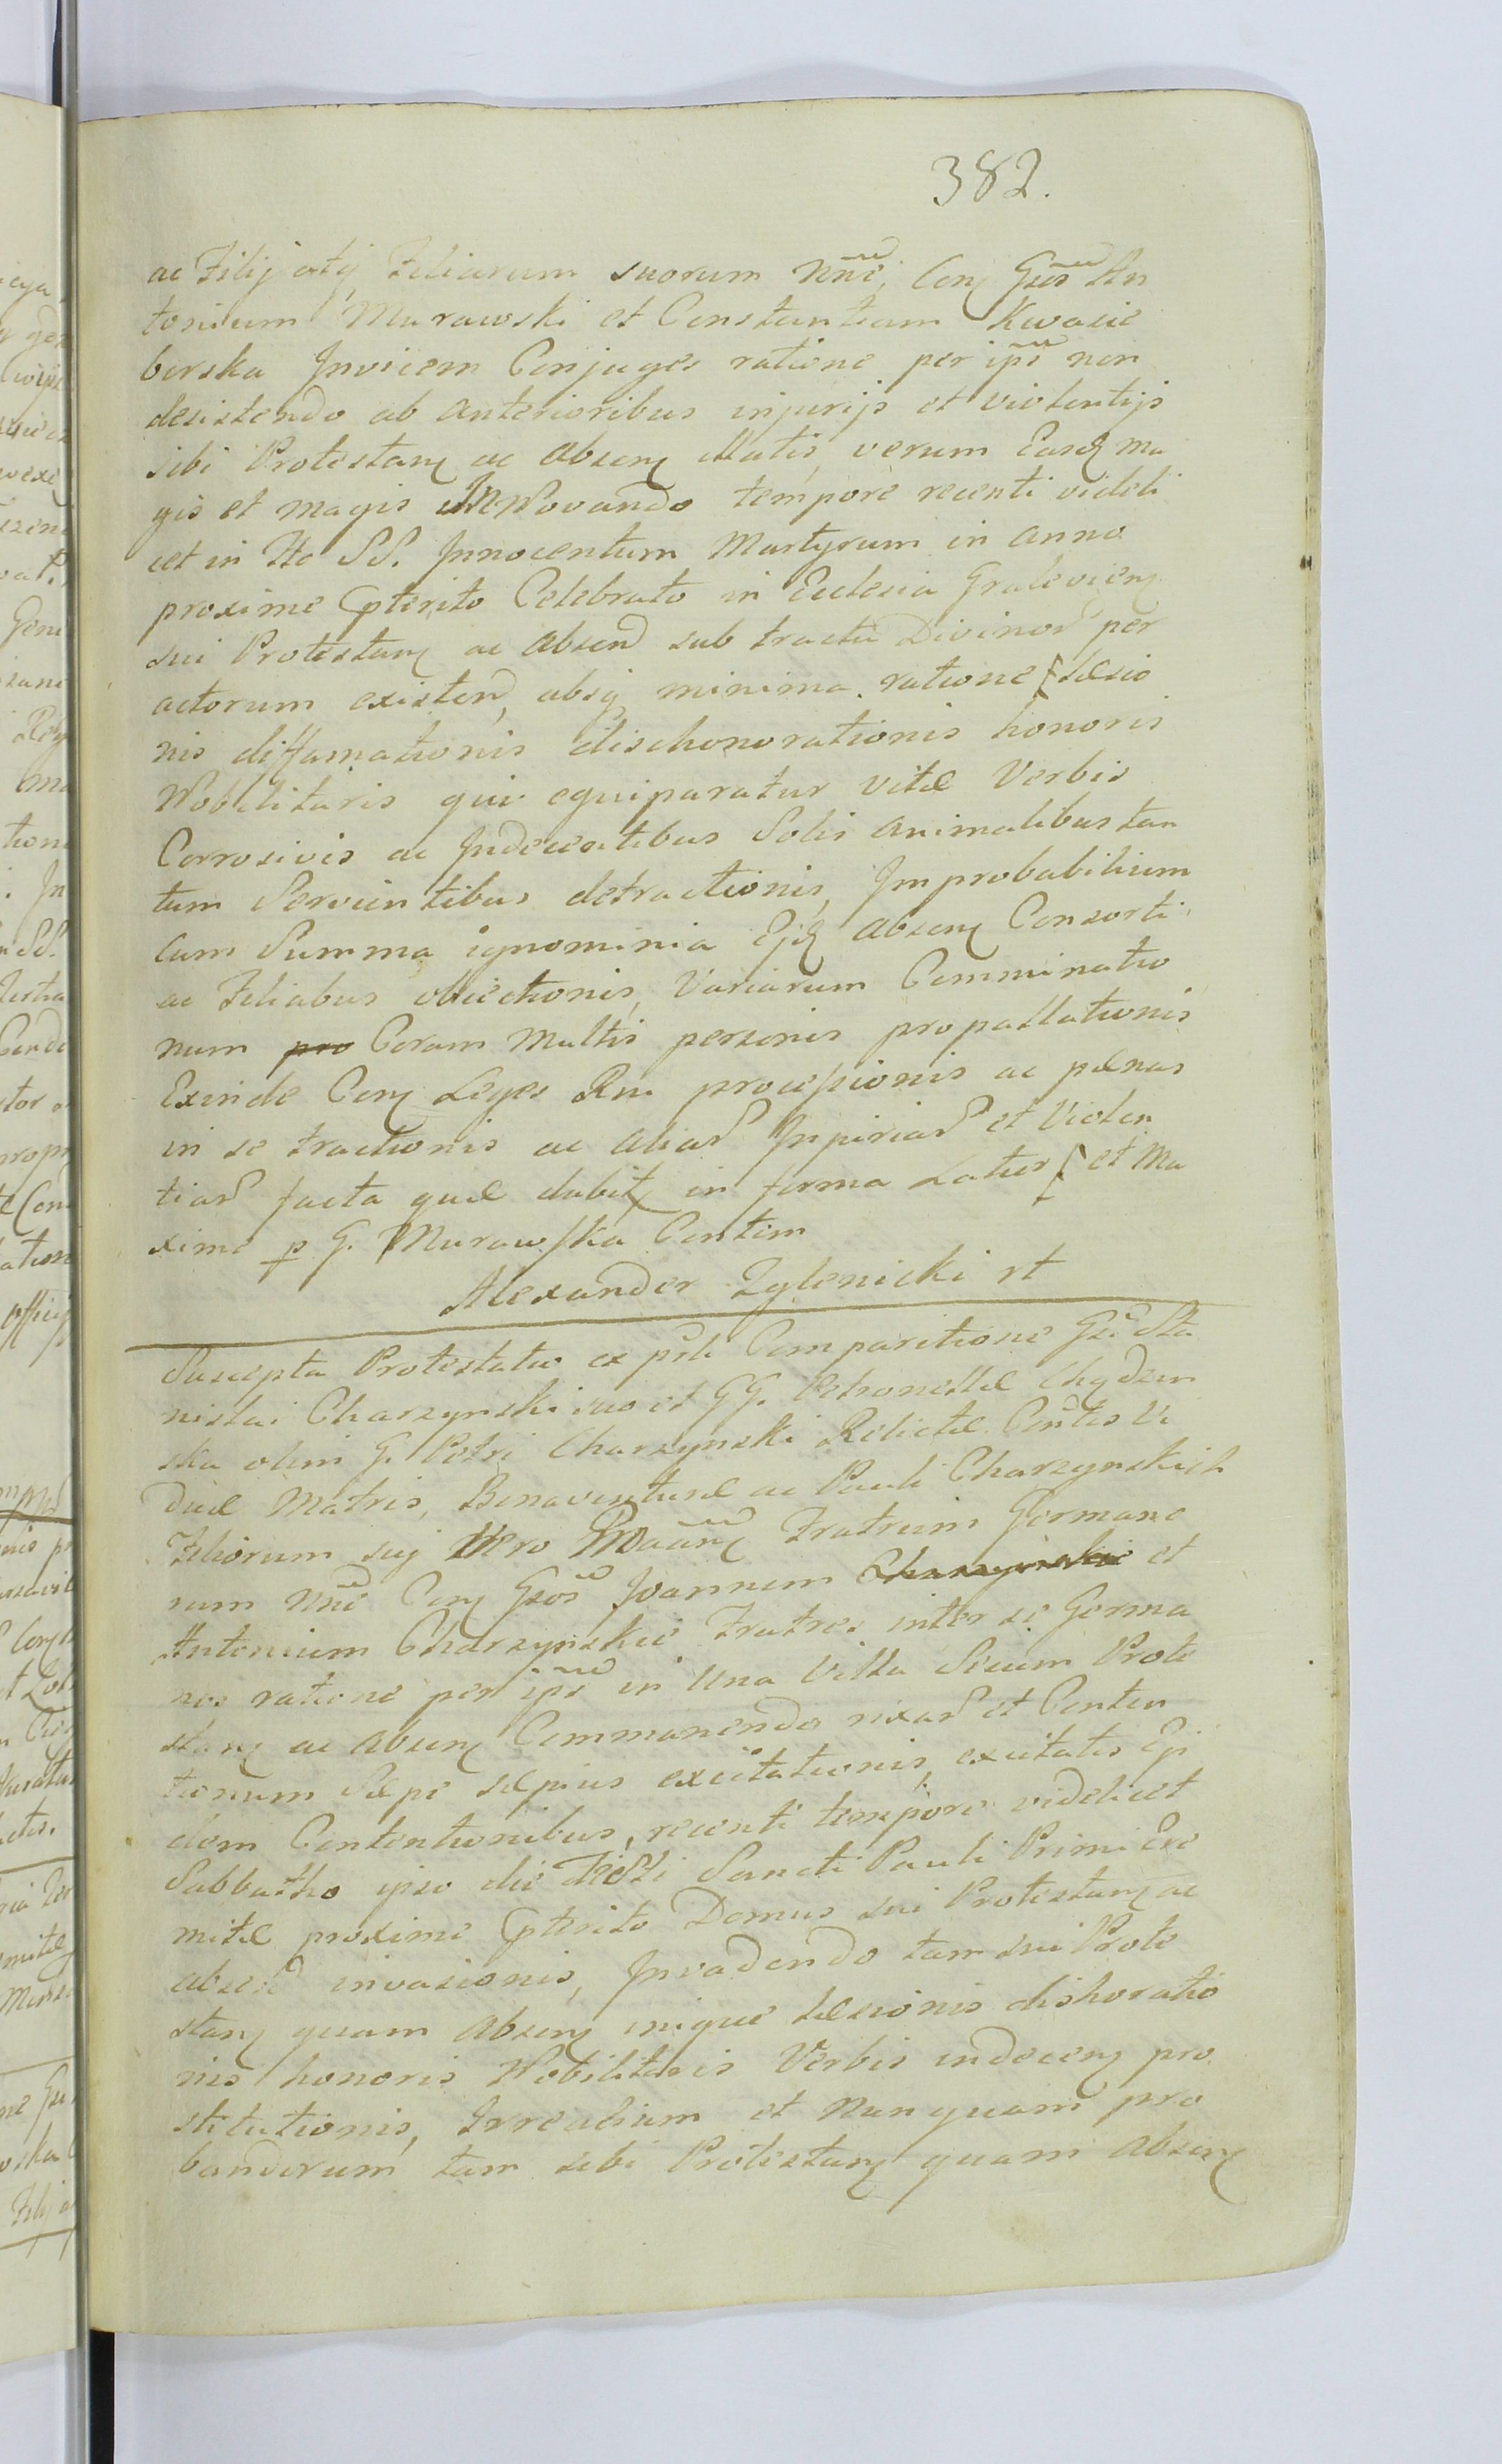 382.
ac Filij atq Filiarum suorum Nnẽ Con Gsos An
tonium Murawski et Constantiam Kwasie
borska Invicem Conjuges ratione per ipsos non
desistendo ab anterioribus injurijs et violentijs
sibi Protestan ac absen illatis, verum Easd ma
gis et magis inNovando tempore recenti videli
cet in Fto SS. Innocentum Martyrum in anno
proxime pterito Celebrato in Ecclesia Gralevien
sui Protestan ac absend sub tractu Divinor per
actorum existend, absq minima ratione læsio
nis diffamationis dischonorationis honoris
Nobilitaris qui equiparatur vitæ Verbis
Corrosivis ac Indecentibus Solis animalibus tan
tum Servientibus detractionis, Improbabilium
cum Summa ignominia Ejd absen Consorti
ac Filiabus obiectionis, Variarum Comminatio
num pro Coram Multis personis propallationis
Exinde Con Leges Rni processionis ac pænas
in se tractionis ac aliar Injuriar et Violen
tiar facta quæ dabit in forma Latior et Ma
xime p G. Murawska Contim
Alexander Zylenicki rt
Suscepta Protestatio ex psli Comparitione Gsi Sta
nislai Charzynski suo et GG. Petronellæ Chądzin
ska olim G. Petri Charzynski Relictæ Contis Vi
duæ Matris, Benaventuræ ac Pauli Charzynskich
Filiorum suj Vero Fratrum Germano
rum Nnẽ Con Gsos Joannem Charzynskie et
Antonium Charzynskie Fratres inter se Germa
nos ratione per ipsos in Una Villa Secum Prote
stan ac absen Commanendo rixar et Conten
tionum Sæpe sæpius excitationis, excitatis Eji
dem Contentionibus, recenti tempore videlicet
Sabbatho ipso die Festi Sancti Pauli Primi Ere
mitæ proxime pterito Domus sui Protestan ac
absend invasionis, Invadendo tam sui Prote
stan quam absen inique læsionis dishoratio
nis honoris Nobilitaris Verbis indecen pro
stitutionis, Irrealium et nunquam pro
bandorum tam sibi Protestan quam absen